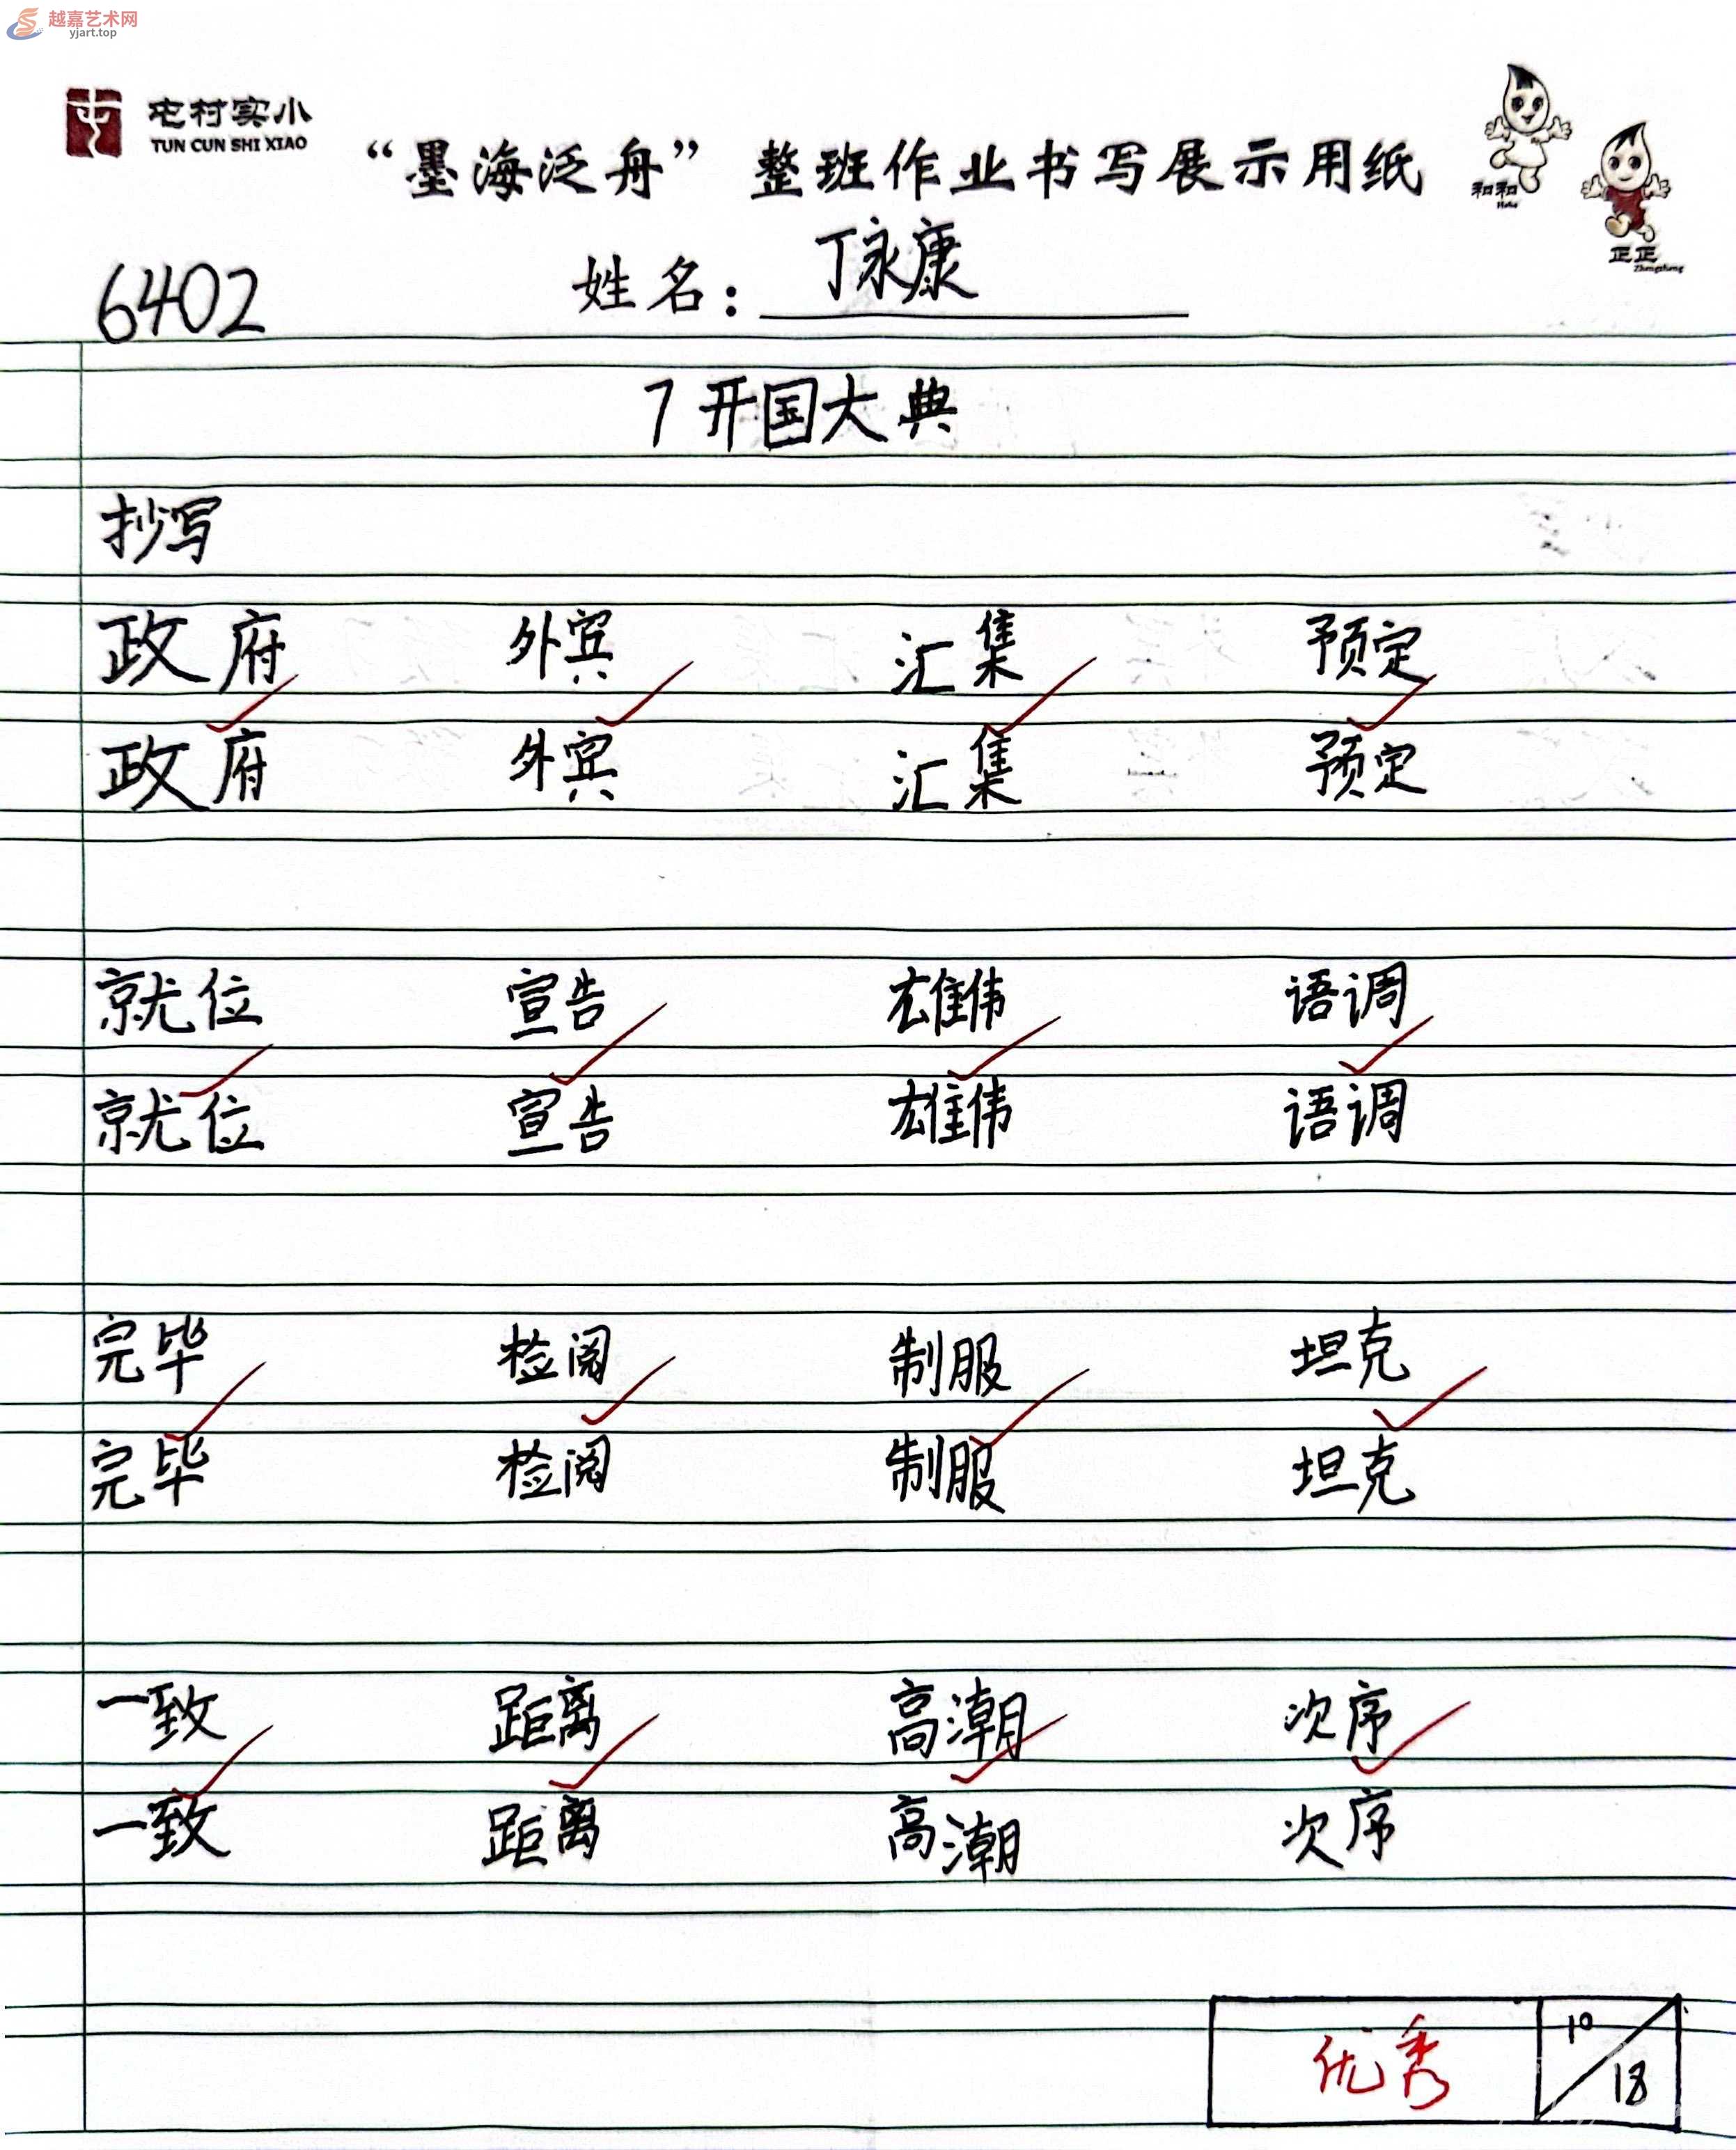 越嘉艺术网
yjart.top
屯村实小
TUN CUN SHI XIAO
“墨海泛舟” 整班作业书写展示用纸
和和
正正
6402 姓名：丁永康
7 开国大典
抄写
政府 外宾 汇集 预定
政府 外宾 汇集 预定
就位 宣告 雄伟 语调
就位 宣告 雄伟 语调
完毕 检阅 制服 坦克
完毕 检阅 制服 坦克
一致 距离 高潮 次序
一致 距离 高潮 次序
优秀 10/18